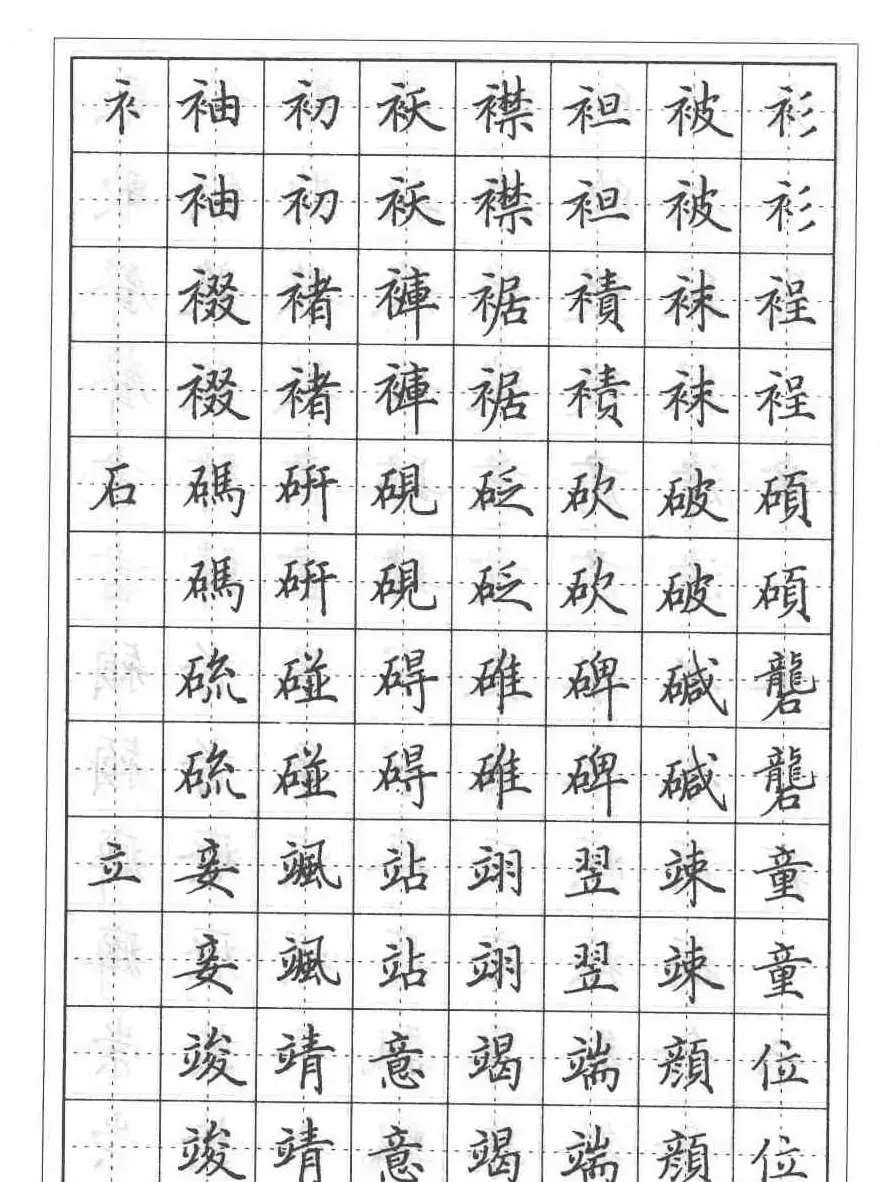 衤 袖 初 袄 襟 袒 被 衫
袖 初 袄 襟 袒 被 衫
裰 褚 褲 裾 襀 袜 裎
裰 褚 褲 裾 襀 袜 裎
石 碼 硏 硯 砭 砍 破 碩
碼 硏 硯 砭 砍 破 碩
硫 碰 碍 碓 碑 碱 礱
硫 碰 碍 碓 碑 碱 礱
立 妾 颯 站 翊 翌 竦 童
妾 颯 站 翊 翌 竦 童
竣 靖 意 竭 端 顔 位
竣 靖 意 竭 端 顔 位